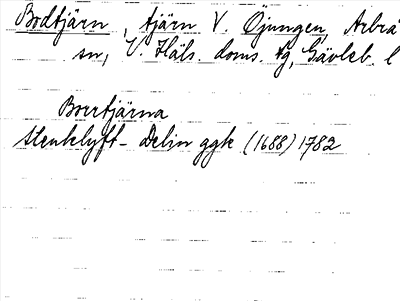 Bodtjärn, tjärn V. Öjungen, Arbrå
sn, V. Häls. doms. tg, Gävleb. l
Borrtjärna
Stenklyft - Delin ggk (1688) 1782